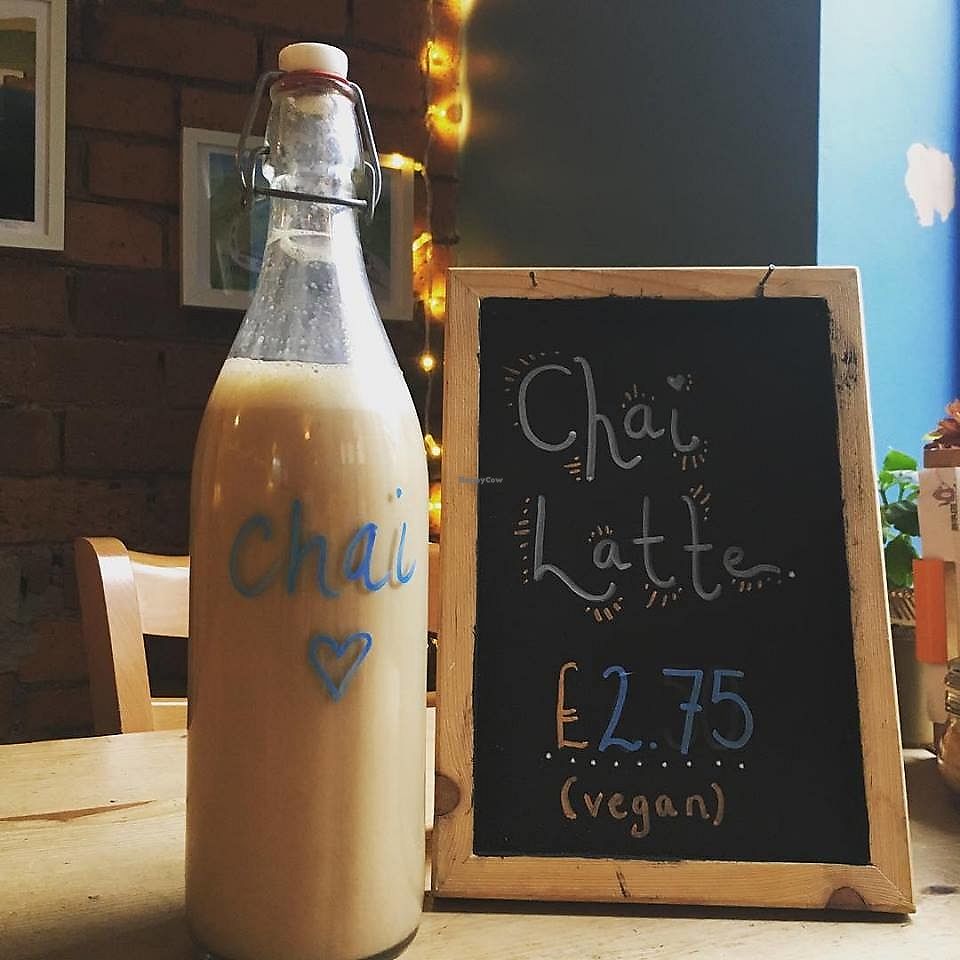 chai
Chai
Latte.
£2.75
(vegan)
HappyCow